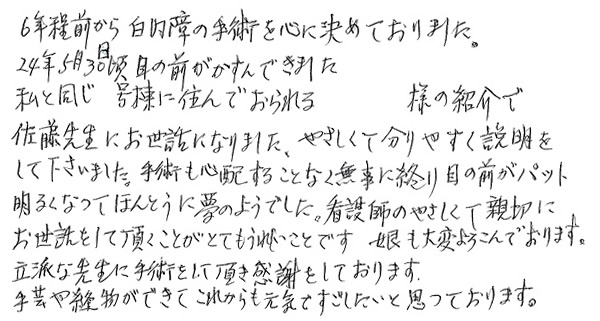 6年程前から白内障の手術を心に決めておりました。
24年5月30日頃目の前がかすんできました
私と同じ 号棟に住んでおられる 様の紹介で
佐藤先生にお世話になりました、やさしくて分りやすく説明を
して下さいました。手術も心配することなく無事に終り目の前がパット
明るくなってほんとうに夢のようでした。看護師のやさしくて親切に
お世話をして頂くことがとてもうれしいことです 娘も大変よろこんでおります。
立派な先生に手術をして頂き感謝をしております.
手芸や縫物ができてこれからも元気ですごしたいと思っております。